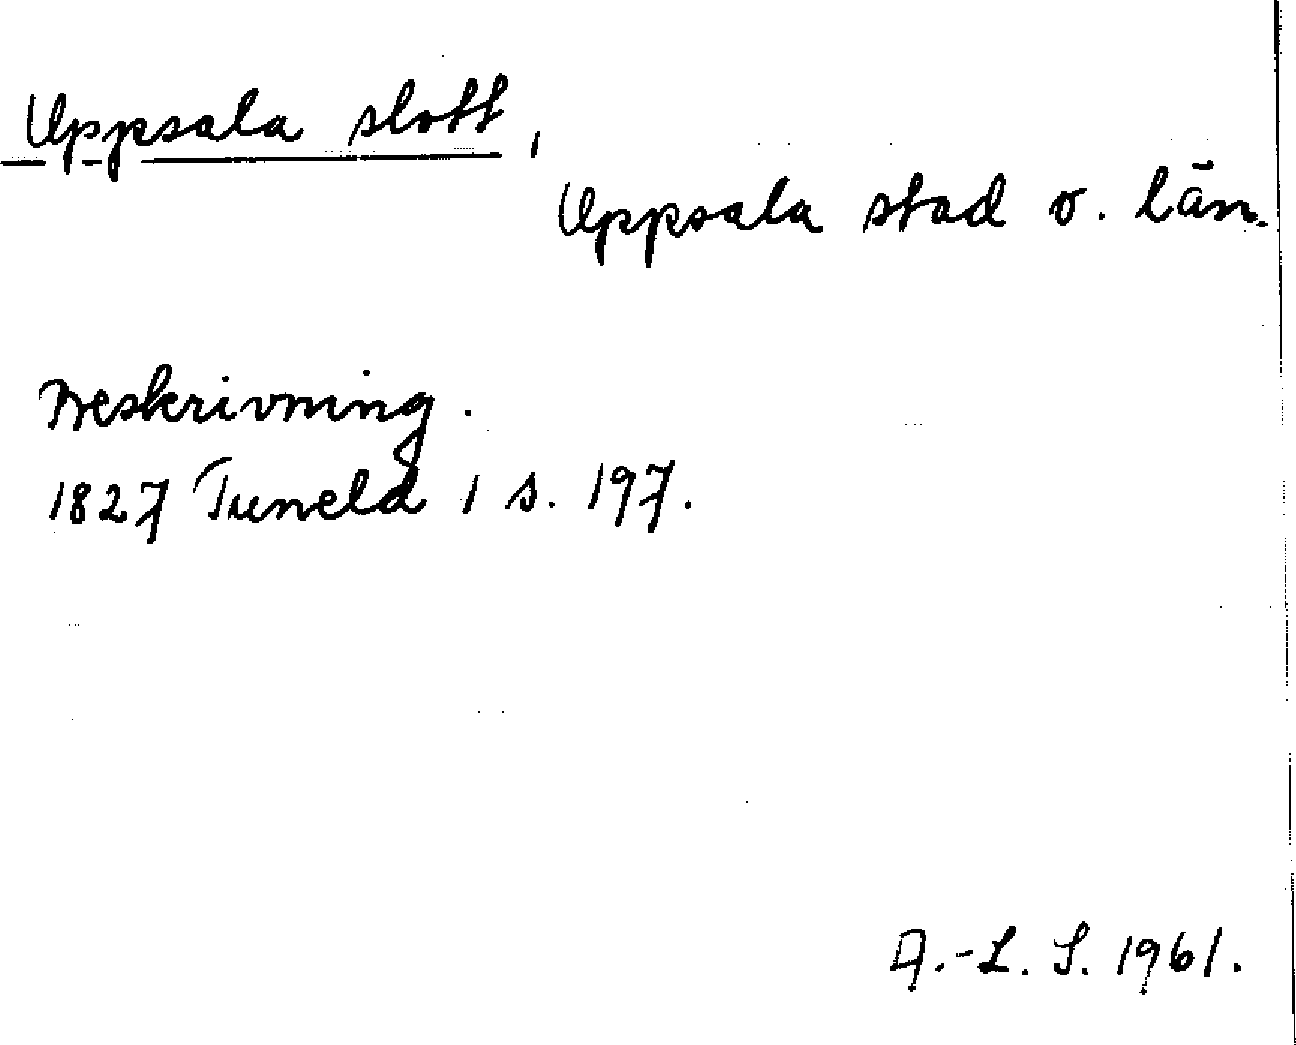 Uppsala slott,
Uppsala stad o. län.
Beskrivning.
1827 Tuneld 1 s. 197.
A.-L. S. 1961.